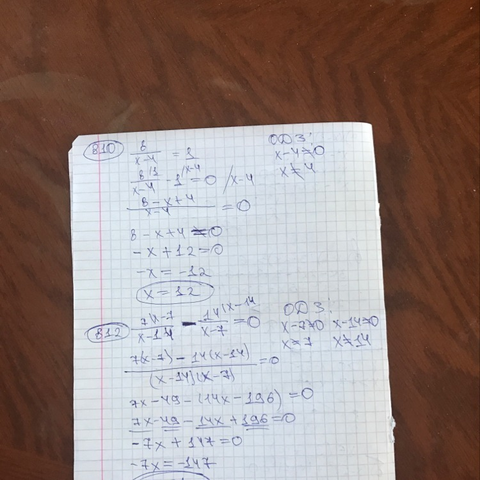 810 8/(x-4) = 1 ОДЗ:
8\1/(x-4) - 1\x-4 = 0 /x-4 x-4≠0
x≠4
(8-x+4)/(x-4) = 0
8-x+4=0
-x+12=0
-x=-12
x=12
812 7\x-7/(x-14) - 14\x-14/(x-7) = 0 ОДЗ:
x-7≠0 x-14≠0
x≠7 x≠14
(7(x-7)-14(x-14))/((x-14)(x-7)) = 0
7x-49-(14x-196)=0
7x-49-14x+196=0
-7x+147=0
-7x=-147